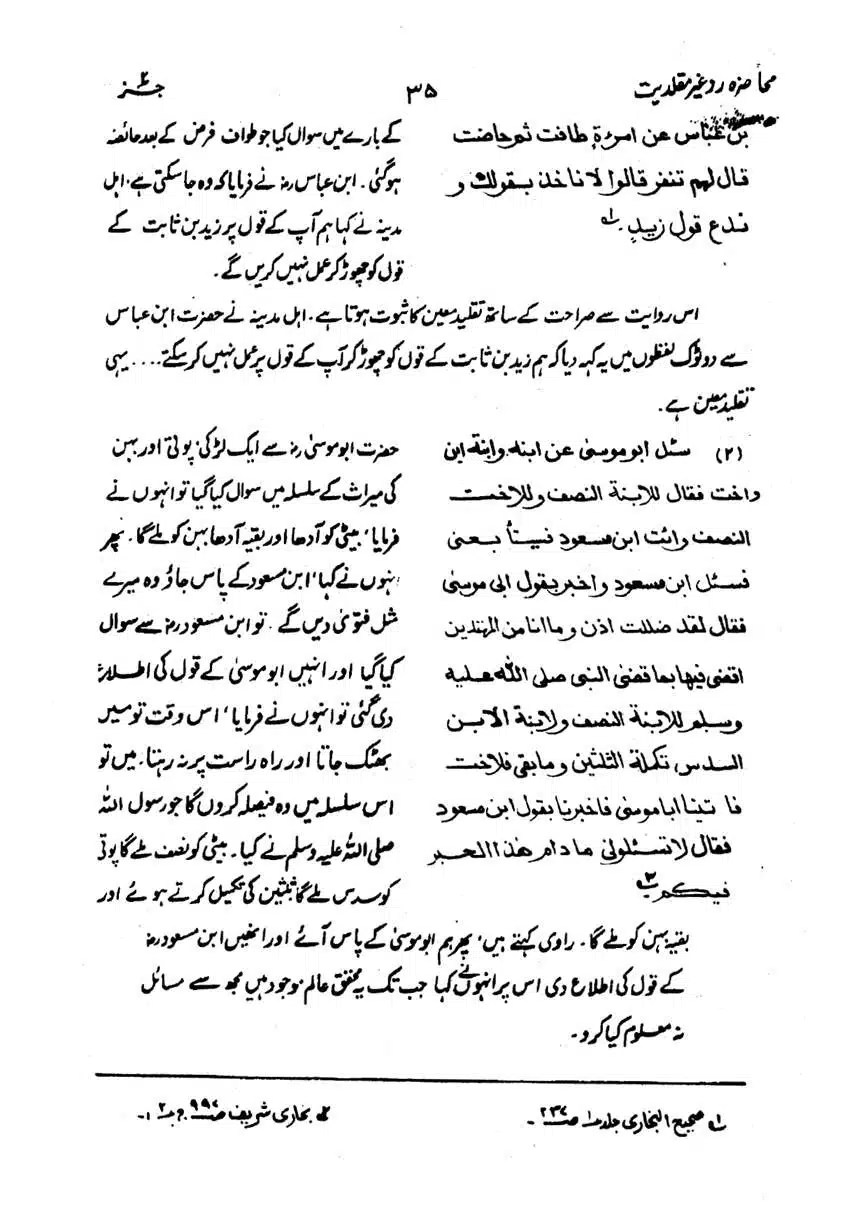 محاضرہ رد غیر مقلدیت ۳۵ جز ۲
بن عباس عن امرءة طافت ثم حاضت
قال لهم تنفر قالوا لا ناخذ بقولك و
ندع قول زيدٍ۔ لہ
کے بارے میں سوال کیا جو طواف فرض کے بعد حائضہ
ہوگئی۔ ابن عباس رضہ نے فرمایا کہ وہ جاسکتی ہے، اہل
مدینہ نے کہا ہم آپ کے قول پر زید بن ثابت کے
قول کو چھوڑ کر عمل نہیں کریں گے۔
اس روایت سے صراحت کے ساتھ تقلید معین کا ثبوت ہوتا ہے۔ اہل مدینہ نے حضرت ابن عباس
سے دو ٹوک لفظوں میں یہ کہہ دیا کہ ہم زید بن ثابت کے قول کو چھوڑ کر آپ کے قول پر عمل نہیں کرسکتے.... یہی
تقلید معین ہے۔
(۲) سئل ابو موسیٰ عن ابنه وابنة ابن
واخت فقال للابنة النصف وللاخت
النصف وائت ابن مسعود فیتأ بعنی
فسئل ابن مسعود واخبر بقول ابی موسیٰ
فقال لقد ضللت اذن وما انا من المهتدین
اقضی فیها بما قضیٰ النبی صلی اللہ علیہ
وسلم للابنة النصف ولابنة الابن
السدس تكملة الثلثین وما بقی فلاخت
فا تینا ابا موسیٰ فاخبرنا بقول ابن مسعود
فقال لا تسئلونی ما دام هذا الحبر
فیکم ۲ہ
حضرت ابو موسیٰ رضہ سے ایک لڑکی، پوتی اور بہن
کی میراث کے سلسلہ میں سوال کیا گیا تو انہوں نے
فرمایا، بیٹی کو آدھا اور بقیہ آدھا بہن کو ملے گا۔ پھر
انہوں نے کہا، ابن مسعود کے پاس جاؤ وہ میرے
مثل فتویٰ دیں گے۔ تو ابن مسعود رضہ سے سوال
کیا گیا اور انہیں ابو موسیٰ کے قول کی اطلاع
دی گئی تو انہوں نے فرمایا، اس وقت تو میں
بھٹک جاتا اور راہ راست پر نہ رہتا۔ میں تو
اس سلسلہ میں وہ فیصلہ کروں گا جو رسول اللہ
صلی اللہ علیہ وسلم نے کیا۔ بیٹی کو نصف ملے گا پوتی
کو سدس ملے گا ثلثین کی تکمیل کرتے ہوئے اور
بقیہ بہن کو ملے گا۔ راوی کہتے ہیں، پھر ہم ابو موسیٰ کے پاس آئے اور انھیں ابن مسعود رضہ
کے قول کی اطلاع دی اس پر انہوں نے کہا جب تک یہ محقق عالم موجود ہیں مجھ سے مسائل
نہ معلوم کیا کرو۔
لہ صحیح البخاری جلد ۱ ص۲۳۷۔ ۲ہ بخاری شریف ص۹۹۷ ج ۲۔